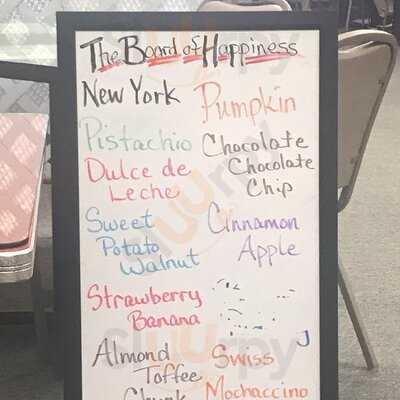 The Board of Happiness
New York
Pumpkin
Pistachio
Chocolate
Chocolate
Chip
Dulce de
Leche
Sweet
Potato
Walnut
Cinnamon
Apple
Strawberry
Banana
Almond
Toffee
Chunk
Swiss
Mochaccino